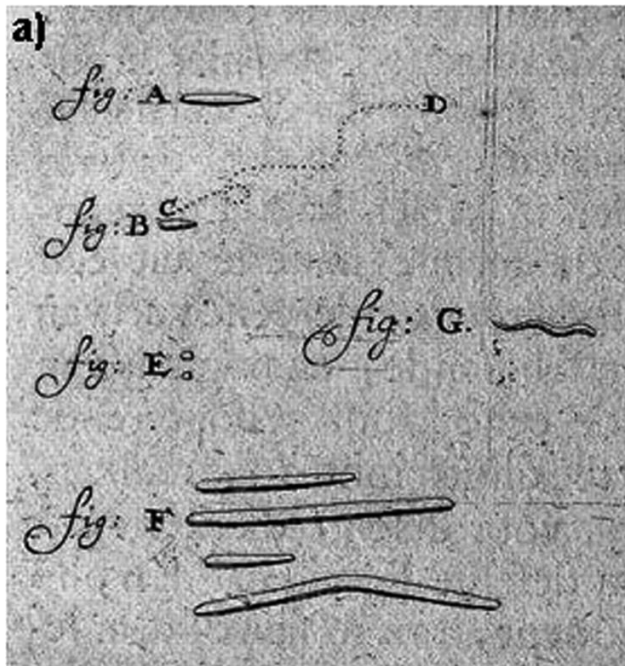 a)
fig: A
D
C
fig: B
fig: G.
fig: E
fig: F